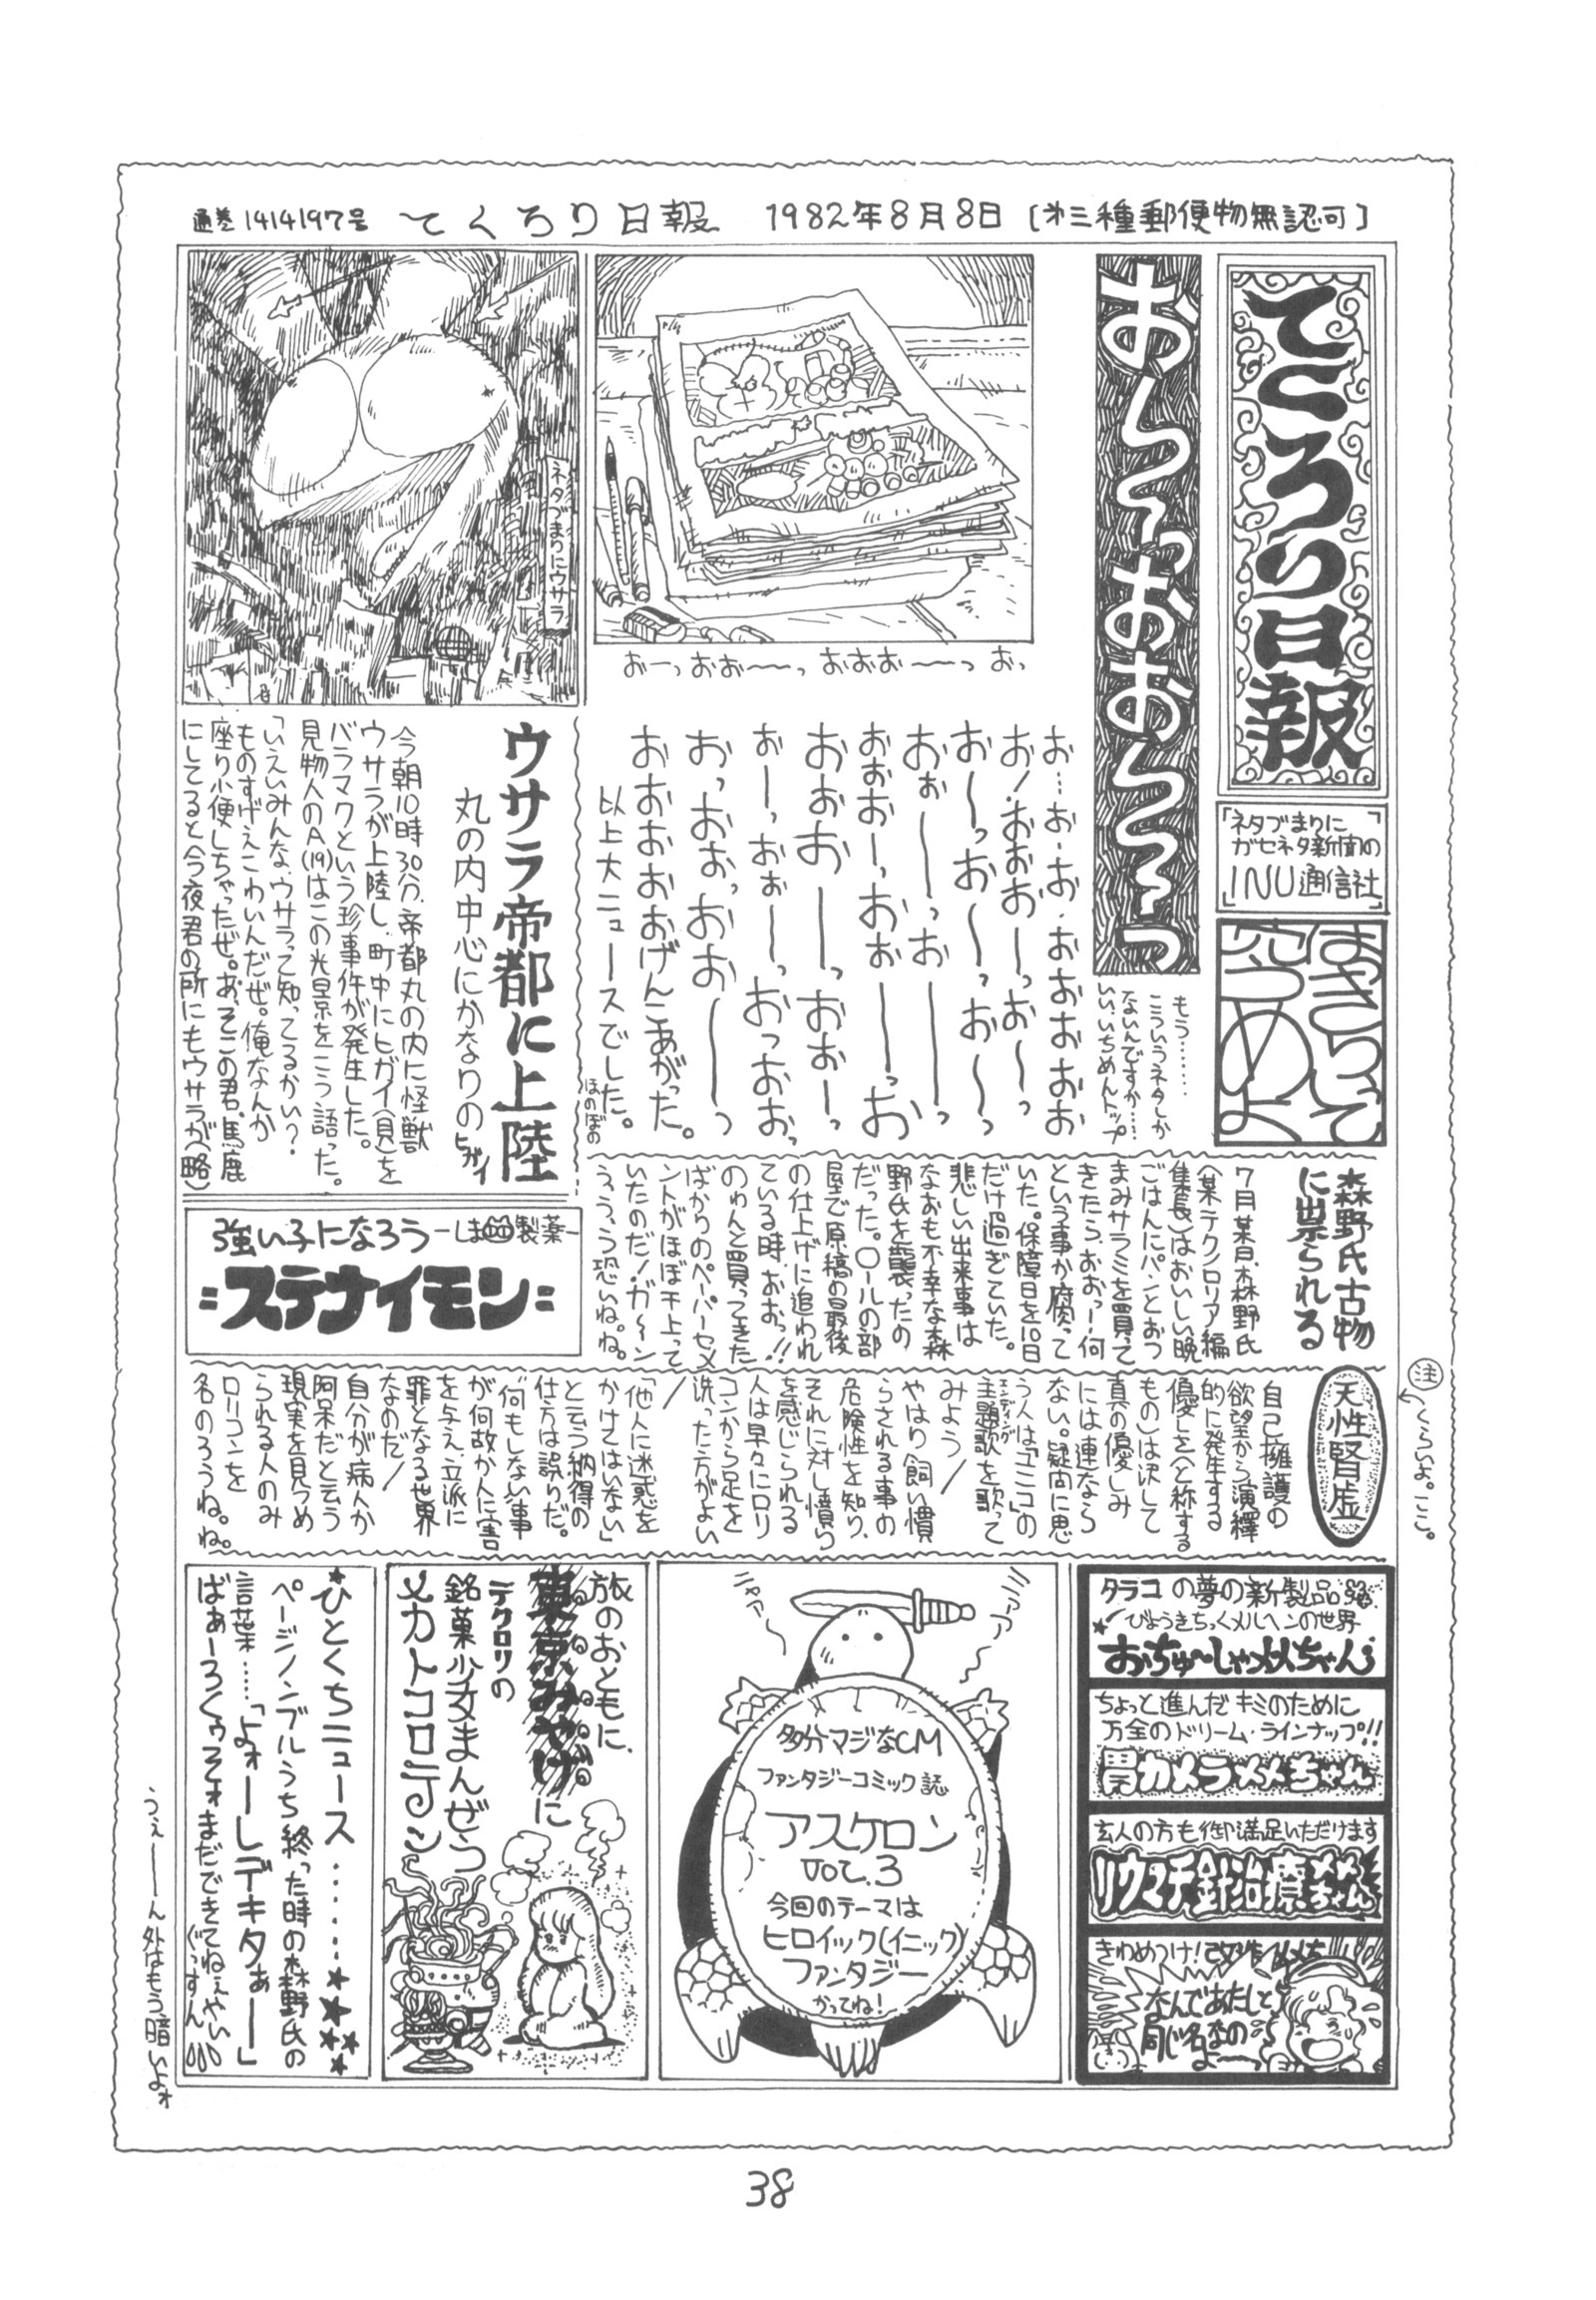 通巻1414197号 てくろり日報 1982年8月8日 [オ三種郵便物無認可]
てくろり日報
「ネタづまりに
ガセネタ新聞の
INU通信社」
はさらって
穴うめよ
おーっおおーっ
もう……
こういうネタしか
ないんですか……
いい、いちめんトップ
おーっおお〜〜っ おおお〜〜っ おっ
お…お・お・おおおおお
おくれ!おおお〜っお〜っ
お〜っお〜っお〜っ
おぉ〜〜っお〜〜っ
おおお〜っおぉ〜〜っお
おぉお〜〜っおお〜っ
お〜っおぉ〜っおっおおっ
おっおおっおお〜〜っ
おおおおおげんこあがった。
以上大ニュースでした。
ほのぼの
ネタづまりにウサラ
ウサラ帝都に上陸
丸の内中心にかなりのヒガイ
今朝10時30分、帝都丸の内に怪獣
ウサラが上陸し、町中にヒガイ(貝)を
バラマクという珍事件が発生した。
見物人のA(19)はこの光景をこう語った。
「いえいみんな、ウサラって知ってるかい?
ものすげえこわいんだぜ。俺なんか
座り小便しちゃったぜ。あ、そこの君、馬鹿
にしてると今夜君の所にもウサラが(略)
強い子になろう-しほ製薬-
=ステナイモン=
森野氏古物
に祟られる
7月某日、森野氏
(某テクノロリア編
集長)はおいしい晩
ごはんにパンとおつ
まみサラミを買って
きたら、おおっー何
という事か腐って
いた。保障日を10日
だけ過ぎていた。
悲しい出来事は
なおも不幸な森
野氏を襲ったの
だった。ロールの部
屋で原稿の最後
の仕上げに追われ
ている時、おおっ!!
のゎんと買ってきた
ばかりのペーパーセメ
ントがほぼ干上って
いたのだ!ガ〜ン
ううぅう恐いね。ね。
注 ←くらいよ。ここ。
天性賢虚
自己擁護の
欲望から演繹
的に発生する
優しさ〈と称する
もの〉は決して
真の優しみ
には連なら
ない。疑問に思
う人は「ユニコ」の
主題歌を歌って
エンディング
みよう/
やはり飼い慣
らされる事の
危険性を知り、
それに対し憤り
を感じられる
人は早々にロリ
コンから足を
洗った方がよい
/
「他人に迷惑を
かけてはいない」
と云う納得の
仕方は誤りだ。
何もしない事
が何故か人に害
を与え、立派に
罪となる世界
なのだ/
自分が病人か
阿呆だと云う
現実を見つめ
られる人のみ
ロリコンを
名のろうね。ね。
タラコの夢の新製品
びょうきちっくメルヘンの世界
おちゅ〜しゃメメちゃん
ちょっと進んだキミのために
万全のドリーム・ラインナップ!!
胃カメラメメちゃん
玄人の方も御満足いただけます
リウマチ針治療メメちゃん
きわめつけ!改造メメちゃん
なんであたしと
同じ名なの
よ〜〜っ
ニャァ〜
多分マジなCM
ファンタジーコミック誌
アスケロン
VOL.3
今回のテーマは
ヒロイック(イニック)
ファンタジー
かってね!
旅のおともに、
東京みやげに
テクロリの
銘菓少女まんぜう
メカトコロテン
★ひとくちニュース……★★★★★
ページノンブルうち終った時の森野氏の
言葉……「よォーしデキタぁー」
ばぁーろくゥそォまだできてねぇやい
(ぐっすん)
うぇーーん外はもう暗いよォ
38